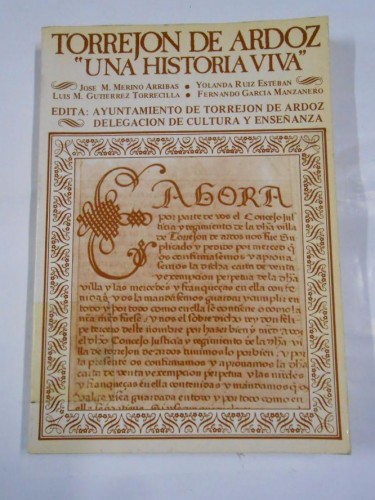 TORREJON DE ARDOZ
"UNA HISTORIA VIVA"
JOSE M. MERINO ARRIBAS • YOLANDA RUIZ ESTEBAN
LUIS M. GUTIERREZ TORRECILLA • FERNANDO GARCIA MANZANERO
EDITA: AYUNTAMIENTO DE TORREJON DE ARDOZ
DELEGACION DE CULTURA Y ENSEÑANZA
E AGORA
por parte de vos el Concejo jus
ticia y regimiento de la dha villa
de Torrejon de ardos nos fue Su
plicado y pedido por merced q
os confirmasemos y aprova
semos la dicha carta de venta
y exempçion perpetua de la dha
villa y las mercedes y franqueças en ella con
das y os la mandasemos guardar y cumplir en
todo y por todo como en ella se contiene o como la
nra md fuese y nos el sobre dicho rey don feli
pe tercero deste nombre por haser bien y md a vos
el dho Concejo Justicia y regimiento de la dha vi
lla de torrejon de ardos tuvimos lo por bien y por
la presente os confirmamos y aprovamos la dha
carta de venta y exempçion perpetua y las mdes y
franqueças en ella contenidas y mandamos q os
valga y sea guardada en todo y por todo como en